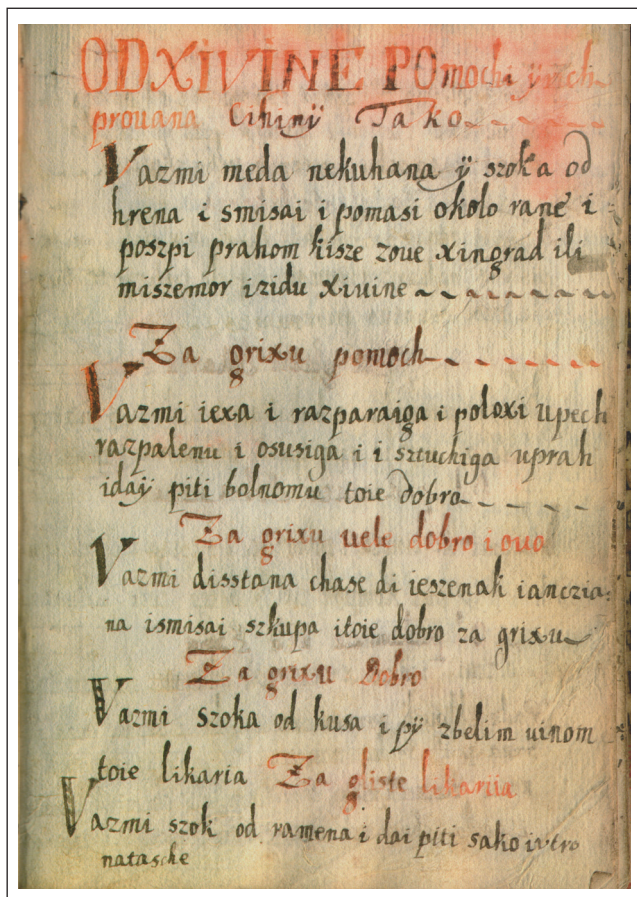 ODXIVINE POmochi ÿzch
prouana Cihinÿ Tako
Vazmi meda nekuhana ÿ szoka od
hrena i smisai i pomasi okolo rane i
poszpi prahom kisze zoue xingrad ili
miszemor izidu xiuine
Za grixu pomoch
Vazmi iexa i razparaiga i poloxi upech
razpalenu i osusiga i i sztuchiga uprah
idaÿ piti bolnomu toie dobro
Za grixu uele dobro i ouo
Vazmi disstana chase di ieszenak ianczia:
na ismisai szkupa itoie dobro za grixu
Za grixu Dobro
Vazmi szoka od kusa i pÿ zbelim uinom
toie likaria Za gliste likariia
Vazmi szok od ramena i dai piti sako iutro
natasche